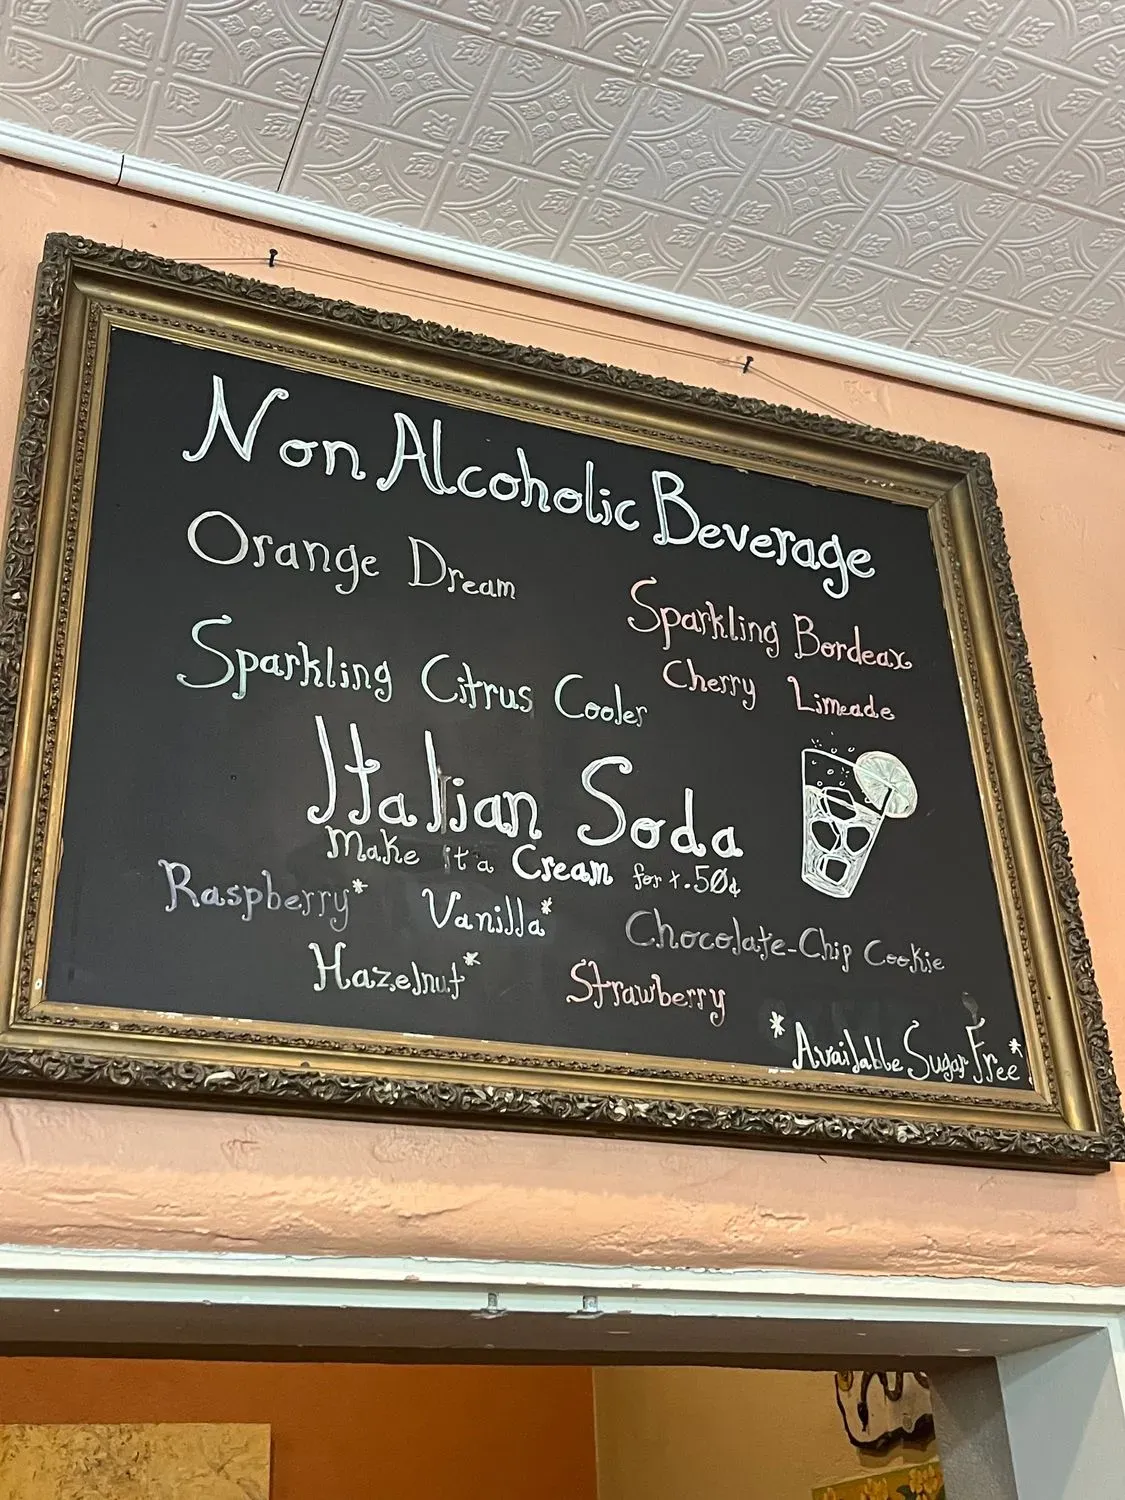 Non Alcoholic Beverage
Orange Dream
Sparkling Bordeax
Cherry Limeade
Sparkling Citrus Cooler
Italian Soda
Make it a Cream for +.50¢
Raspberry* Vanilla* Chocolate-Chip Cookie
Hazelnut* Strawberry
*Available Sugar Free*